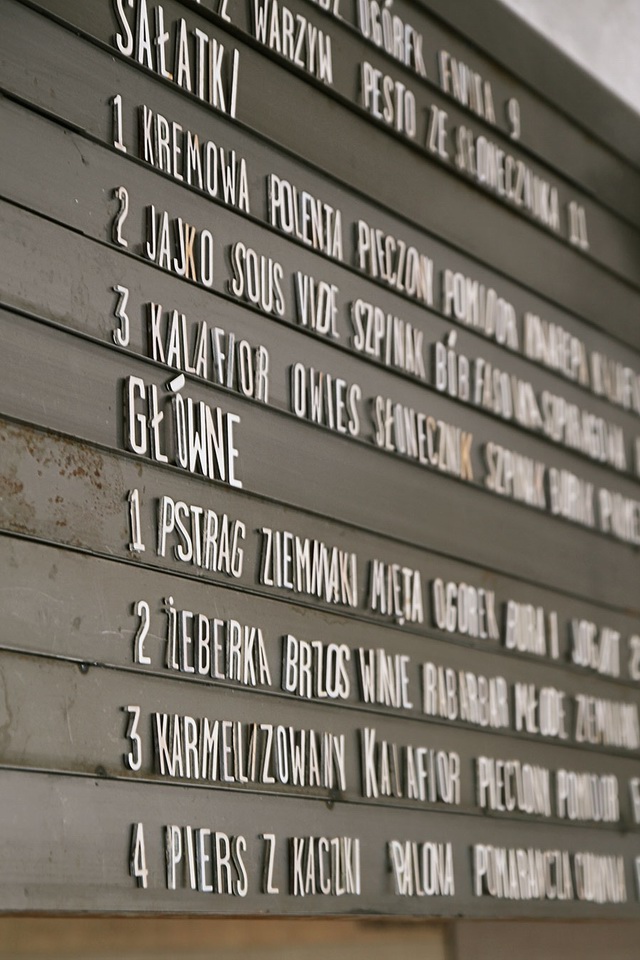 Z WARZYW OGÓREK FRYTA 9
SAŁATKI PESTO ZE SŁONECZNIKA 11
1 KREMOWA POLENTA PIECZONY POMIDOR
2 JAJKO SOUS VIDE SZPINAK BÓB FASOLKA SZPARAGOWA
3 KALAFIOR OWIES SŁONECZNIK SZPINAK BURAK
GŁÓWNE
1 PSTRĄG ZIEMNIAKI MIĘTA OGÓREK BURAK JOGURT
2 ŻEBERKA BRZOS WINIE RABARBAR MŁODE
3 KARMELIZOWANY KALAFIOR PIECZONY POMIDOR
4 PIERŚ Z KACZKI PALONA POMARAŃCZA